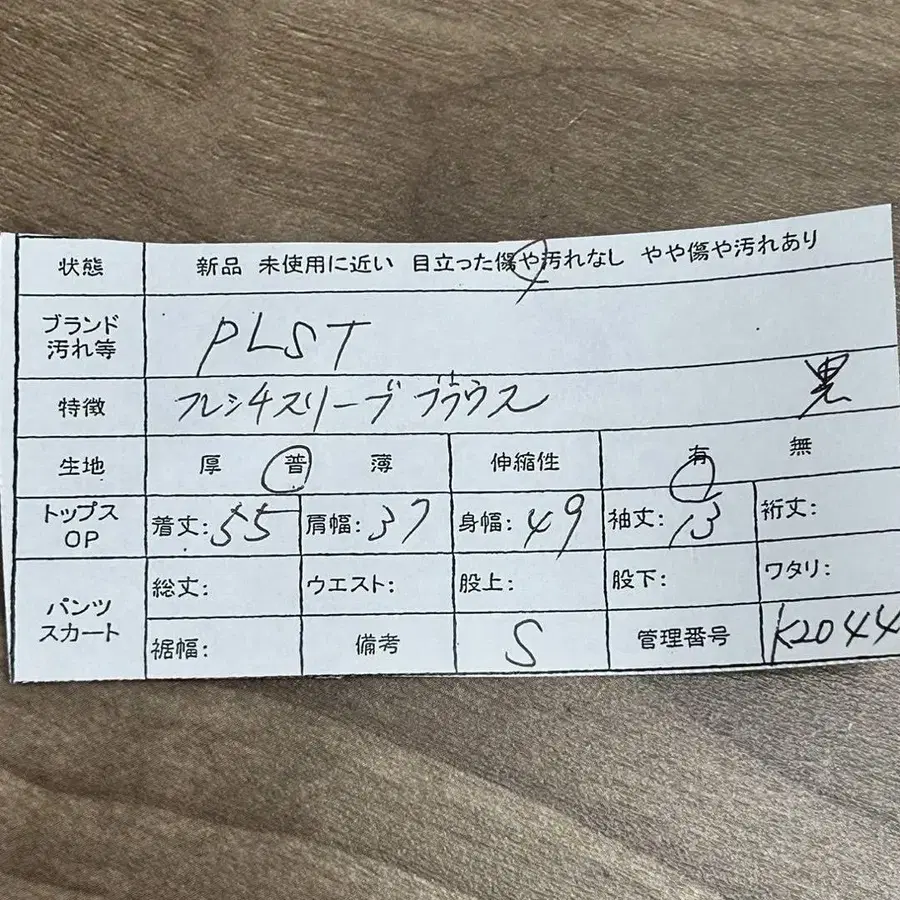 状態 新品 未使用に近い 目立った傷や汚れなし やや傷や汚れあり
ブランド
汚れ等
PLST
特徴 フレンチスリーブ ブラウス 黒
生地 厚 普 薄 伸縮性 有 無
トップス
OP
着丈:55 肩幅:37 身幅:49 袖丈:13 裄丈:
パンツ
スカート
総丈: ウエスト: 股上: 股下: ワタリ:
裾幅: 備考 S 管理番号 K2044